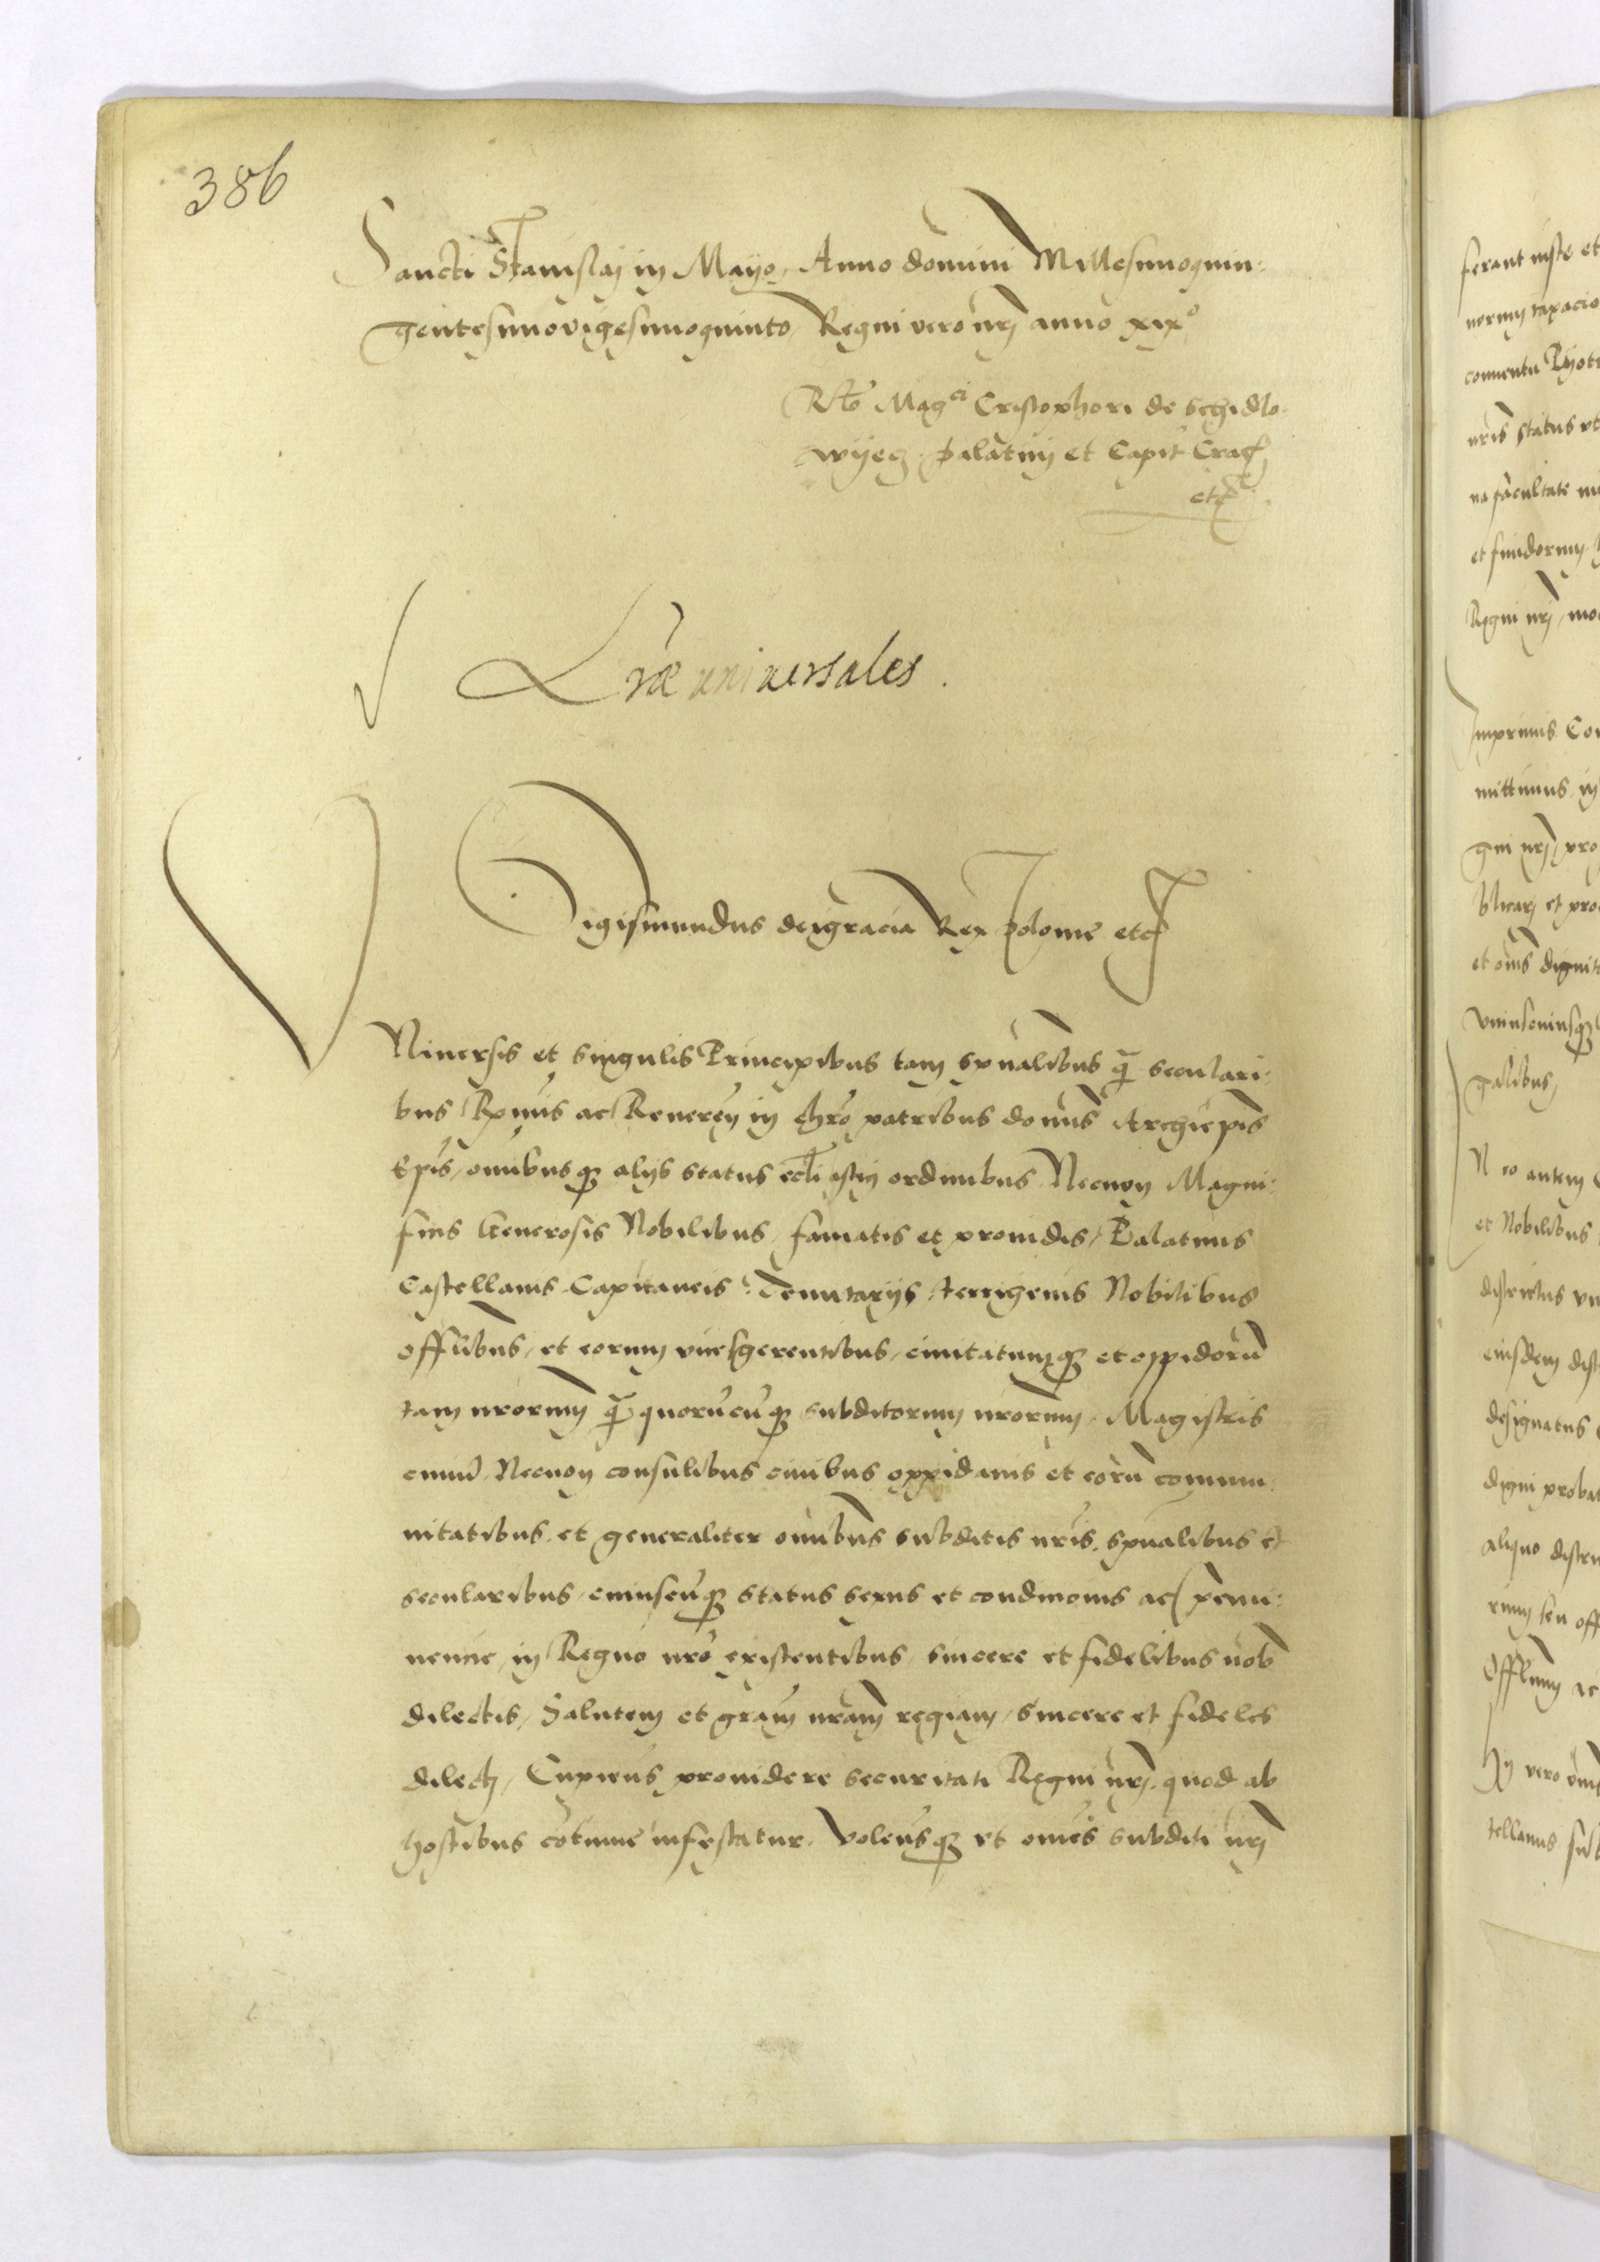 386
Sancti Stanislaj in Mayo, Anno domini Millesimoquin:
gentesimovigesimoquinto, Regni vero nrj anno xix°
Rto Magci Cristophori de Schidlo
wyecz palatinj et Capit Crac
etc
Lræ universales.
Sigismundus deigracia Rex Polonie etc
VNiuersis et singulis Principibus tam spualibus q̃ seculari:
bus Rxmis ac Reueren in chro patribus domis Archiepis
Epis, omibusq alys status ecclīastici ordinibus Necnon Magni:
ficis Generosis Nobilibus, famatis et prouidis, Palatinis
Castellanis Capitaneis Tenutarijs terrigenis Nobilibus
offlibus, et eorum vicesgerentibus, ciuitatumq et oppidorum
tam nrorum q̃ quorucuq subditorum nrorum, Magistris
ciuium, Necnon consulibus ciuibus oppidanis et eoru commu
nitatibus, et generaliter omibus subditis nris, spualibus et
secularibus, cuiuscuq status sexus et condicionis ac premi:
nencie, in Regno nro existentibus, sincere et fidelibus nob
dilectis, Salutem et gram nram regiam, Sincere et fideles
dilecti, Cupieus prouidere securitati Regni nrj, quod ab
hostibus cotinue infestatur, Voleusq et omes subditi nrj
ferant iuste et
conuentu Pyotr
nris status vt
na facultate
et fundorum
Regni nrj, mo
Inprimis Co
mittimus in
gni nrj, pro
blicarj et pro
et omis dignit
vniuscuiusq
galibus,
N eo autem
et Nobilibus
districtus vn
eiusdem dist
designatus
digni probat
aliquo distri
rium seu off
Offlium ac
Hij vero omes
tellanus sub